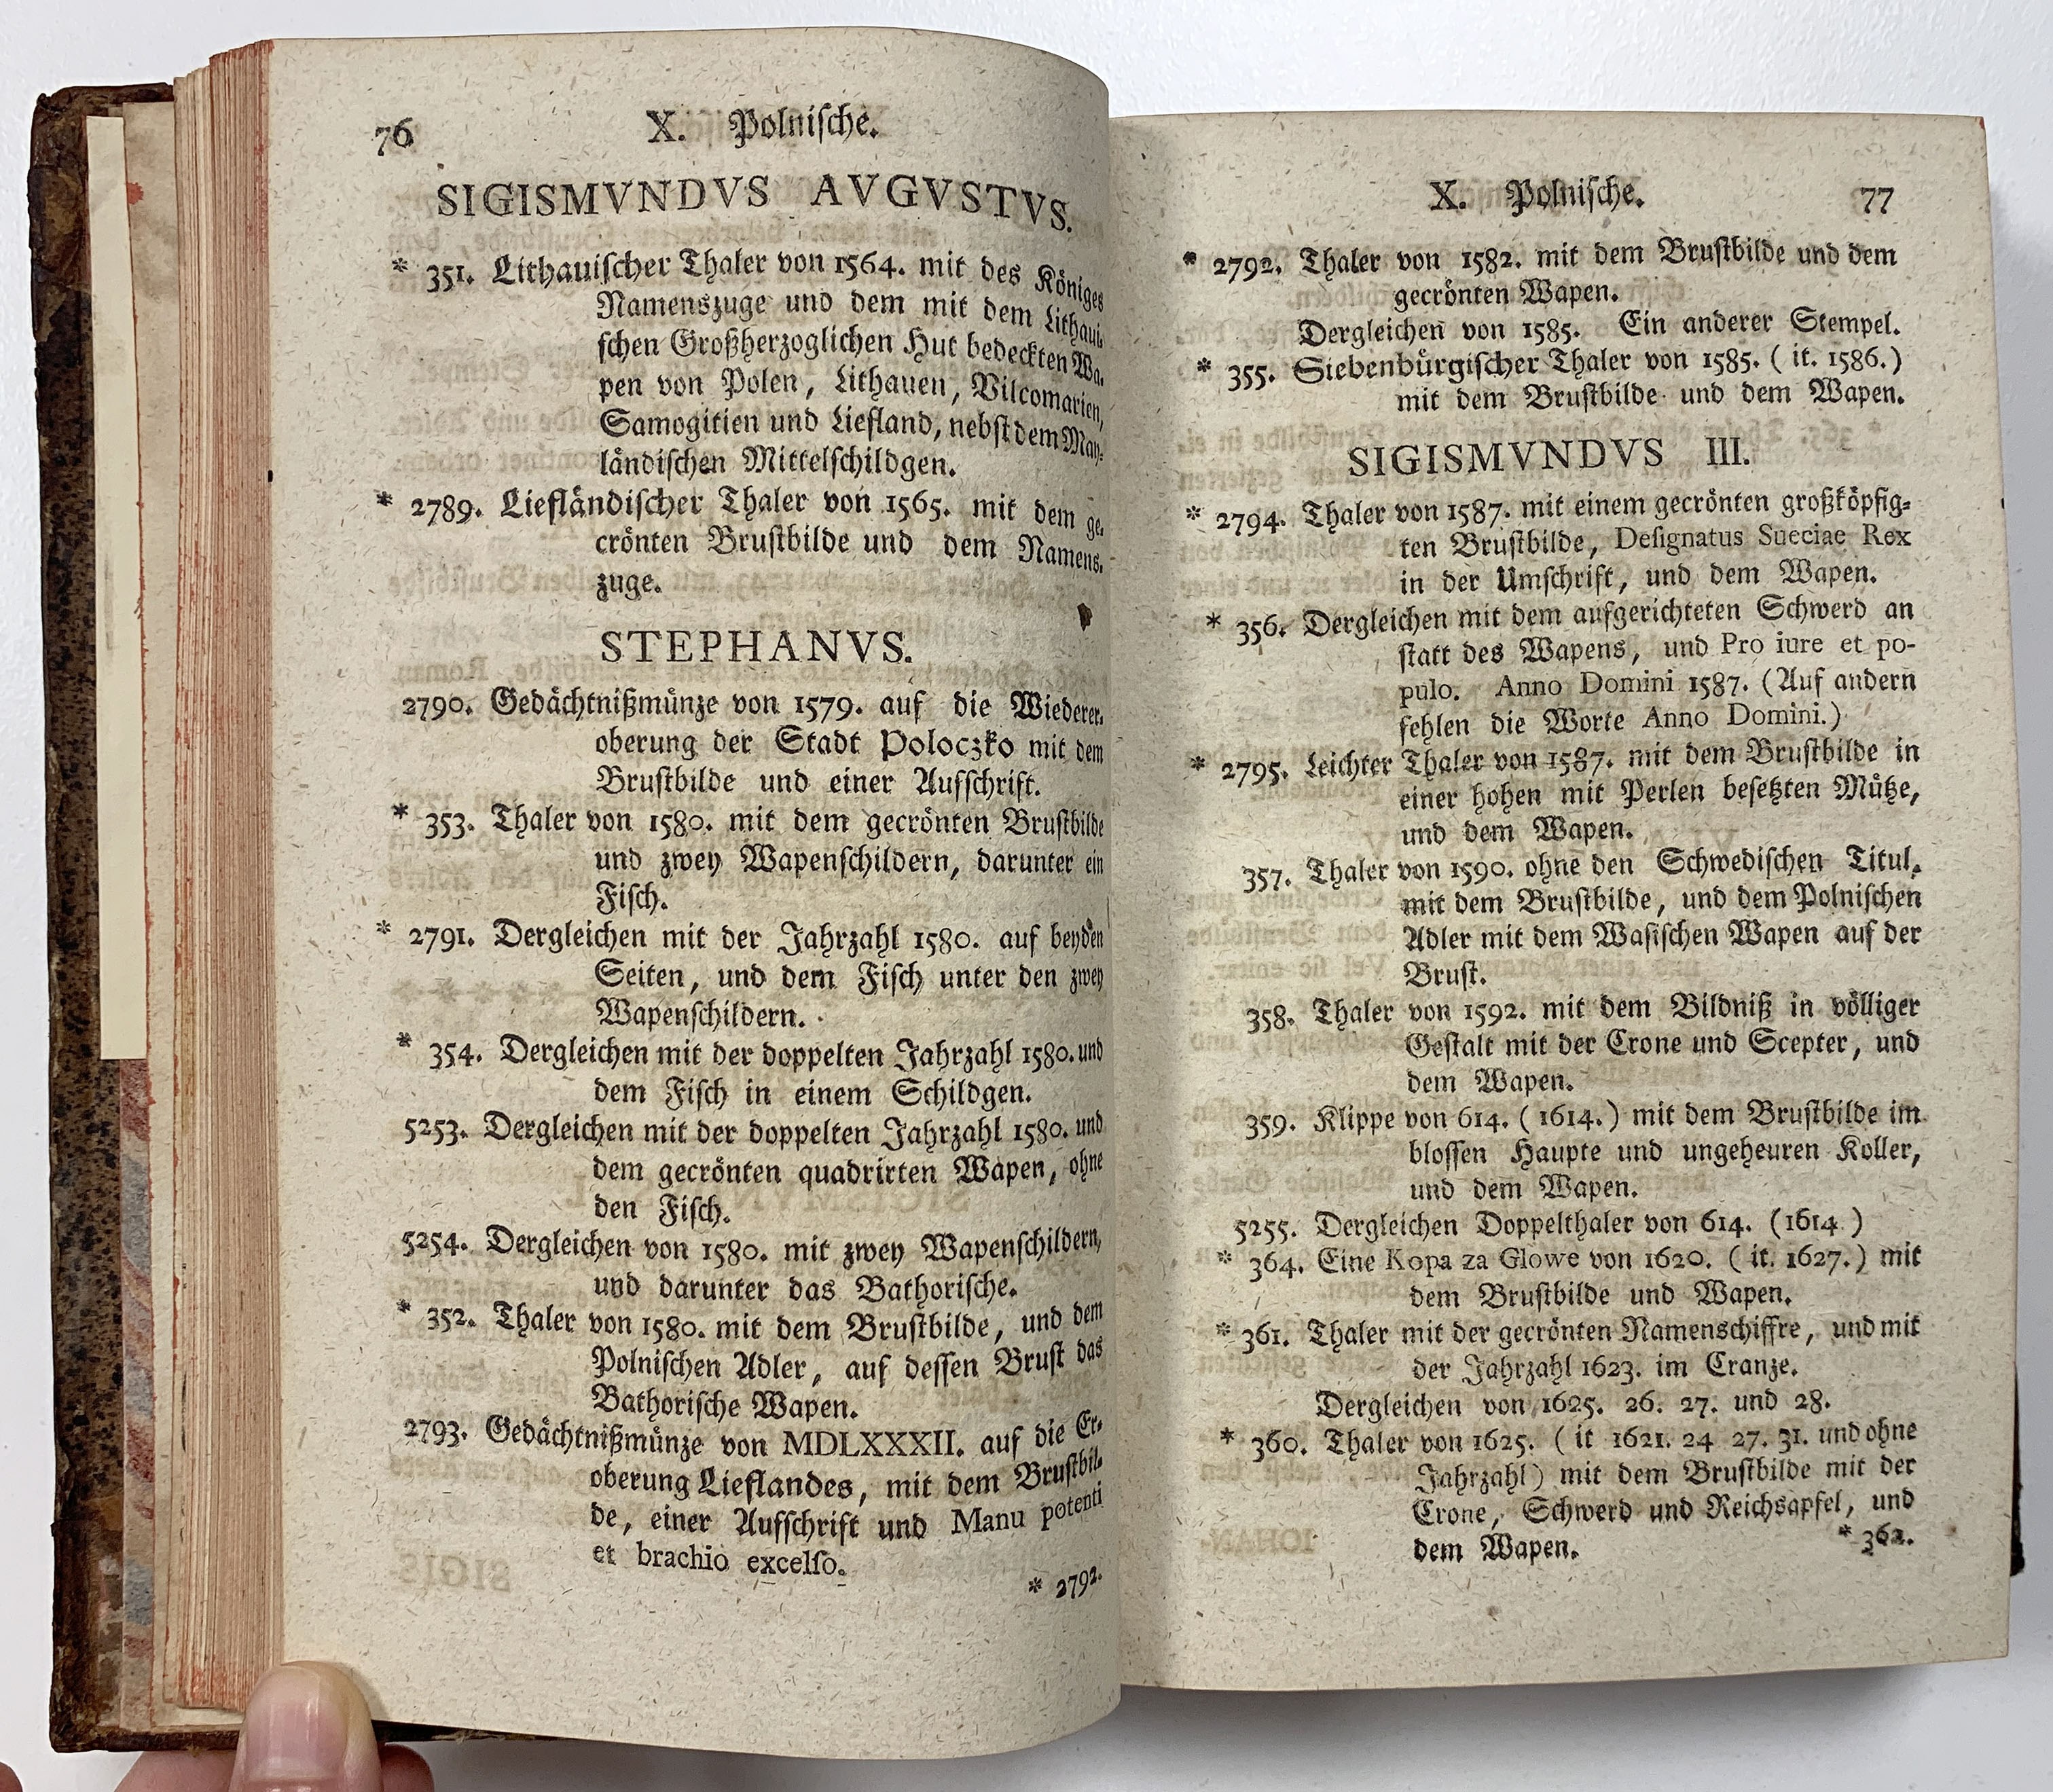 76
X. Polnische.
SIGISMVNDVS AVGVSTVS.
* 351. Lithauischer Thaler von 1564. mit des Königes
Namenszuge und dem mit dem Lithaui-
schen Großherzoglichen Hut bedeckten Wa-
pen von Polen, Lithauen, Vilcomarien,
Samogitien und Liefland, nebst dem May-
ländischen Mittelschildgen.
* 2789. Liefländischer Thaler von 1565. mit dem ge-
crönten Brustbilde und dem Namens-
zuge.
STEPHANVS.
2790. Gedächtnißmünze von 1579. auf die Wiederer-
oberung der Stadt Poloczko mit dem
Brustbilde und einer Aufschrift.
* 353. Thaler von 1580. mit dem gecrönten Brustbilde
und zwey Wapenschildern, darunter ein
Fisch.
* 2791. Dergleichen mit der Jahrzahl 1580. auf beyden
Seiten, und dem Fisch unter den zwey
Wapenschildern.
* 354. Dergleichen mit der doppelten Jahrzahl 1580. und
dem Fisch in einem Schildgen.
5253. Dergleichen mit der doppelten Jahrzahl 1580. und
dem gecrönten quadrirten Wapen, ohne
den Fisch.
5254. Dergleichen von 1580. mit zwey Wapenschildern,
und darunter das Bathorische.
* 352. Thaler von 1580. mit dem Brustbilde, und dem
Polnischen Adler, auf dessen Brust das
Bathorische Wapen.
2793. Gedächtnißmünze von MDLXXXII. auf die Er-
oberung Lieflandes, mit dem Brustbil-
de, einer Aufschrift und Manu potenti
et brachio excelso.
* 2792.
X. Polnische.
77
* 2792. Thaler von 1582. mit dem Brustbilde und dem
gecrönten Wapen.
Dergleichen von 1585. Ein anderer Stempel.
* 355. Siebenbürgischer Thaler von 1585. ( it. 1586.)
mit dem Brustbilde und dem Wapen.
SIGISMVNDVS III.
* 2794. Thaler von 1587. mit einem gecrönten großköpfig-
ten Brustbilde, Designatus Sueciae Rex
in der Umschrift, und dem Wapen.
* 356. Dergleichen mit dem aufgerichteten Schwerd an
statt des Wapens, und Pro iure et po-
pulo. Anno Domini 1587. (Auf andern
fehlen die Worte Anno Domini.)
* 2795. Leichter Thaler von 1587. mit dem Brustbilde in
einer hohen mit Perlen besetzten Mütze,
und dem Wapen.
357. Thaler von 1590. ohne den Schwedischen Titul,
mit dem Brustbilde, und dem Polnischen
Adler mit dem Wasischen Wapen auf der
Brust.
358. Thaler von 1592. mit dem Bildniß in völliger
Gestalt mit der Crone und Scepter, und
dem Wapen.
359. Klippe von 614. ( 1614. ) mit dem Brustbilde im
blossen Haupte und ungeheuren Koller,
und dem Wapen.
5255. Dergleichen Doppelthaler von 614. (1614 )
* 364. Eine Kopa za Glowe von 1620. ( it. 1627. ) mit
dem Brustbilde und Wapen.
* 361. Thaler mit der gecrönten Namenschiffre, und mit
der Jahrzahl 1623. im Cranze.
Dergleichen von 1625. 26. 27. und 28.
* 360. Thaler von 1625. ( it 1621. 24 27. 31. und ohne
Jahrzahl) mit dem Brustbilde mit der
Crone, Schwerd und Reichsapfel, und
dem Wapen.
* 362.